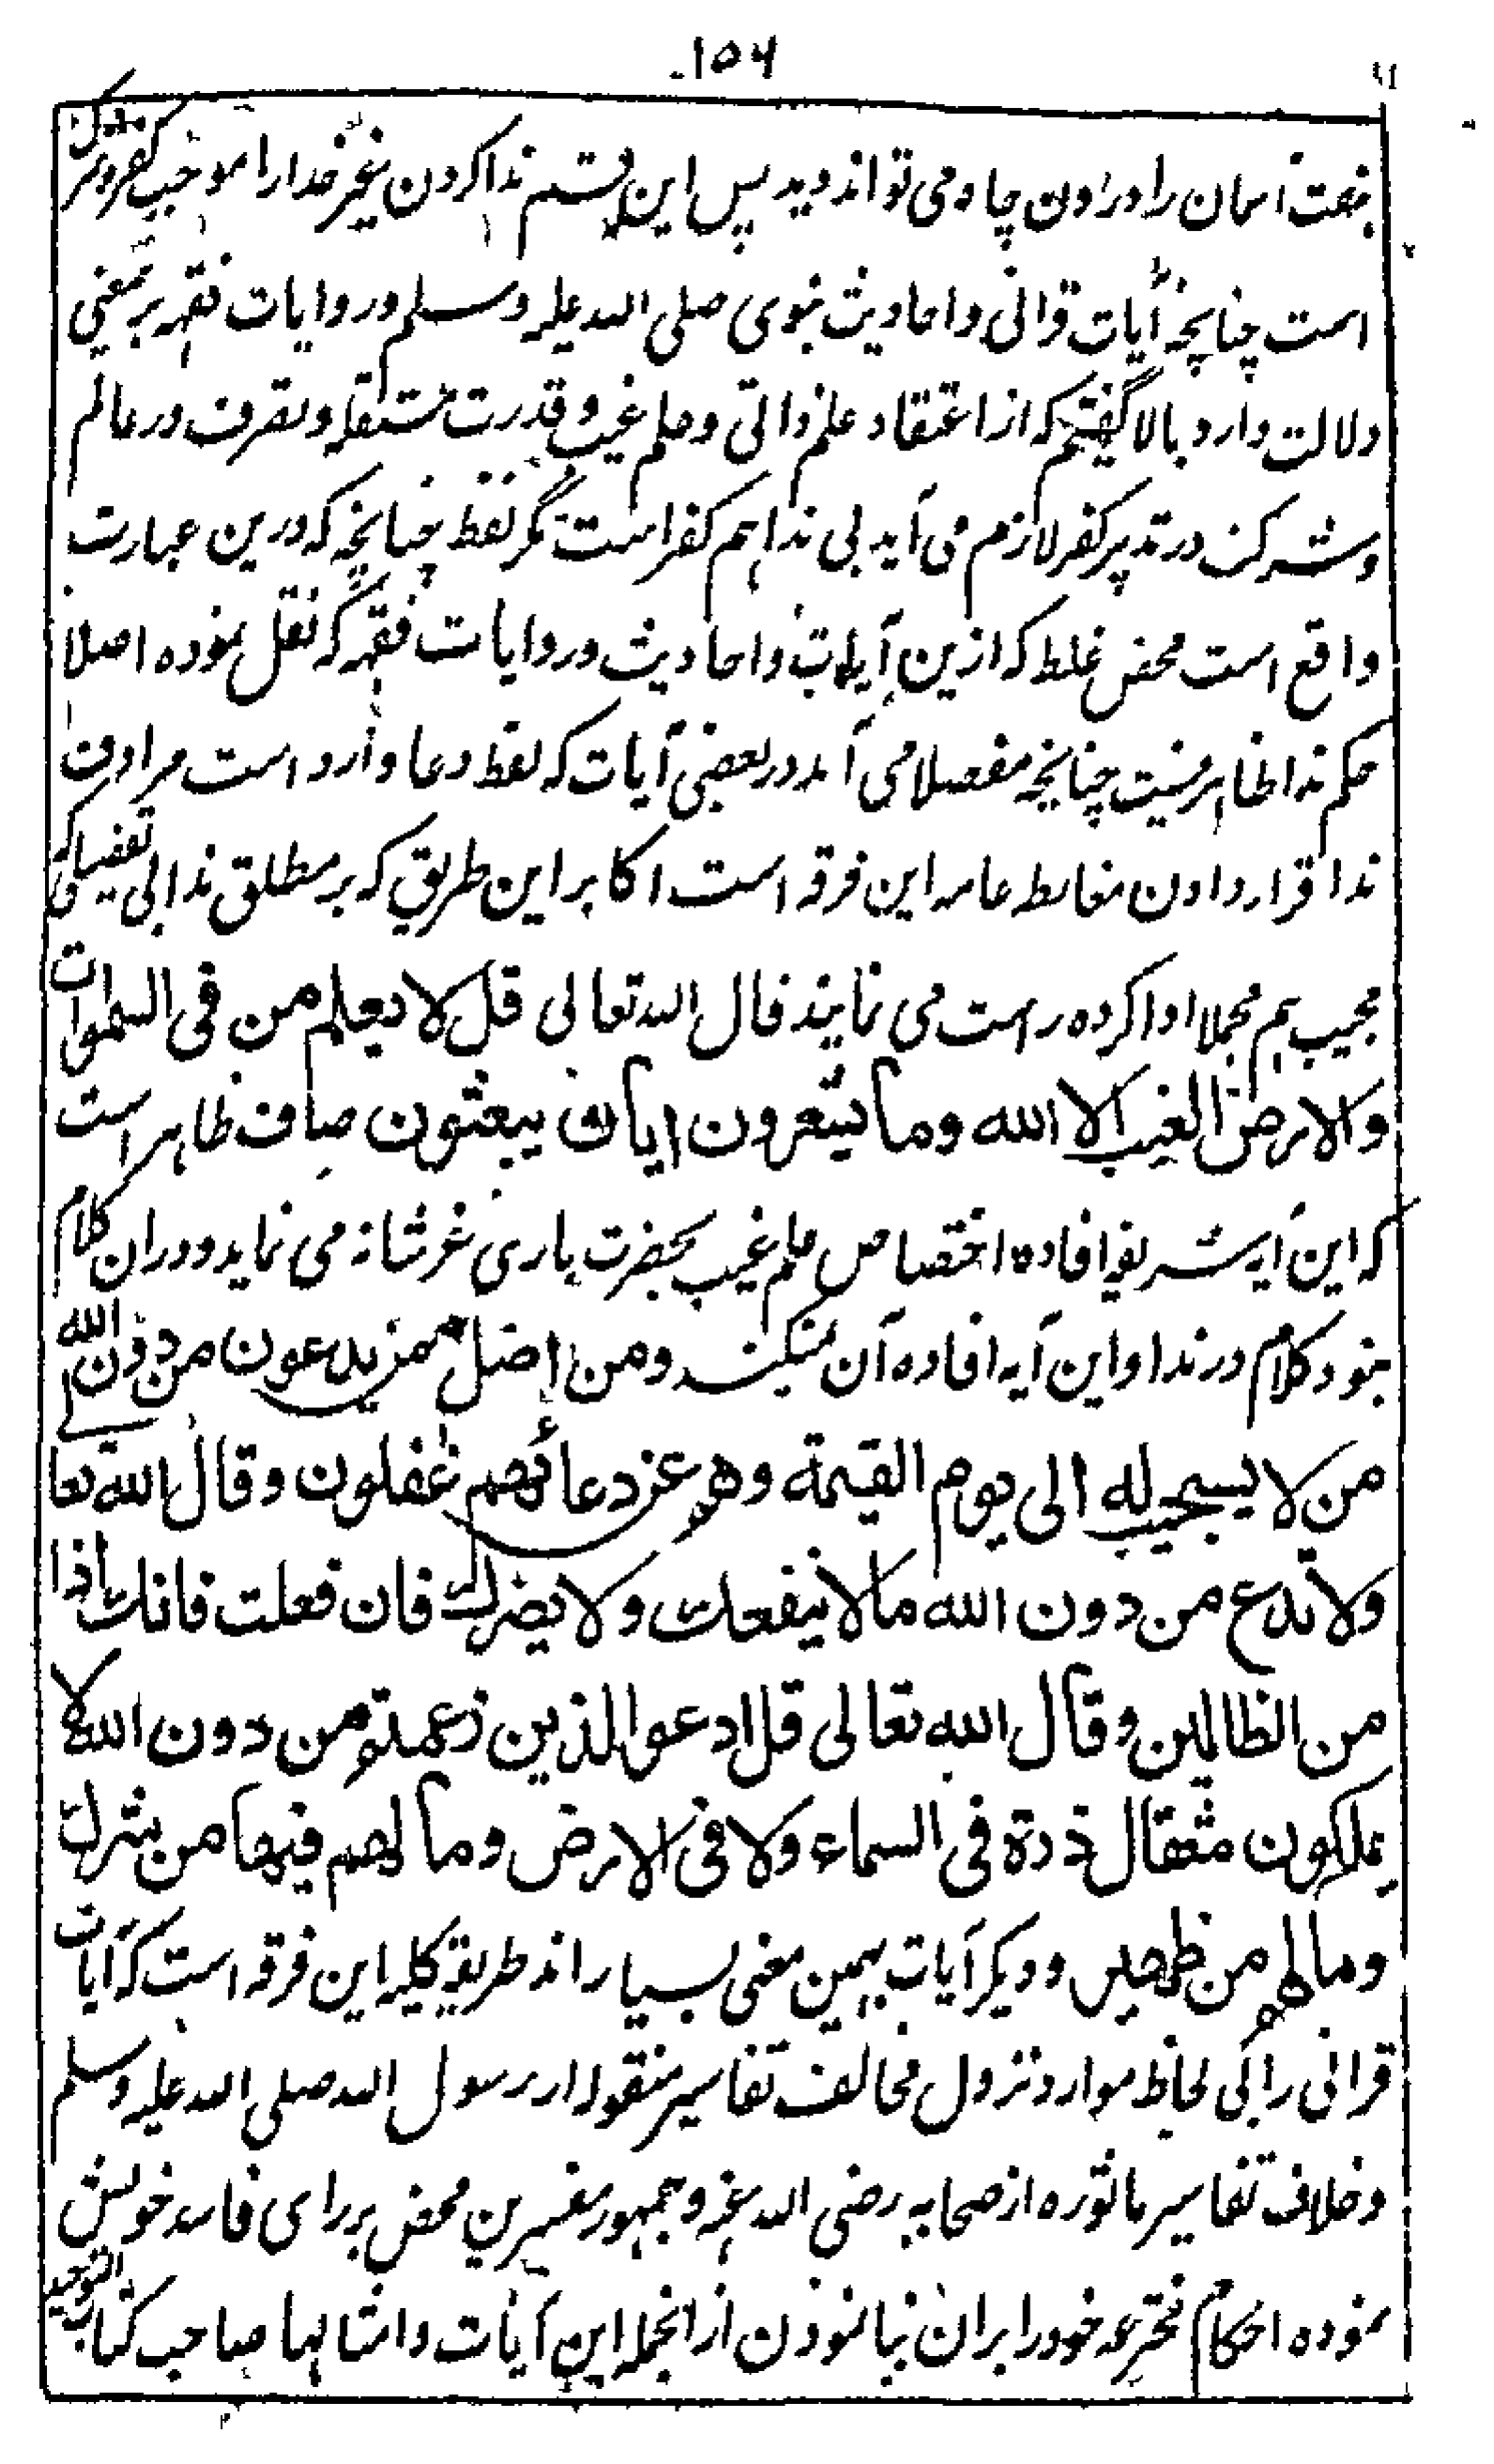 ۱۵۶
هفت آسمان را در آون چاه می تواند دید پس این قسم ندا کردن غیر خدا را موجب کفر و شرک
است چنانچه آیات قرآنی و احادیث نبوی صلی الله علیه وسلم و روایات فقهیه بر همین معنی
دلالت دارد بالا گفتیم که از اعتقاد علم ذاتی و علم غیب و قدرت مستقله و تصرف در عالم
و شرکت در تدبیر کفر لازم می آید بی ندا هم کفر است مگر لفظ چنانچه که درین عبارت
واقع است محض غلط که ازین آیات و احادیث و روایات فقهیه که نقل نموده اصلا
حکم ندا ظاهر نیست چنانچه مفصلا می آمد در بعضی آیات که لفظ دعا وارد است مرادف
ندا قرار دادن مغالطه عامه این فرقه است اکابر این طریق که بر مطلق ندا بی تفصیلی که
مجیب هم مجملا ادا کرده راست می نمایند قال الله تعالی قل لا یعلم من فی السموات
والارض الغیب الا الله وما یشعرون ایان یبعثون صاف ظاهر است
که این آیه شریفه افاده اختصاص علم غیب بحضرت باری عز شانه می نماید و در آن کلام
نبود کلام در ندا و این آیه افاده آن نمیکند ومن اضل ممن یدعون من دون الله
من لا یستجیب له الی یوم القیمة وهم عن دعائهم غفلون وقال الله تعا
ولا تدع من دون الله مالا ینفعک ولا یضرک فان فعلت فانک اذا
من الظالمین وقال الله تعالی قل ادعوا الذین زعمتم من دون الله لا
یملکون مثقال ذرة فی السماء ولا فی الارض وما لهم فیهما من شرک
وما لهم من ظهیر و دیگر آیات بهمین معنی بسیار اند طریقه کلیه این فرقه است که آیات
قرآنی را بی لحاظ موارد نزول مخالف تفاسیر منقوله از رسول الله صلی الله علیه وسلم
و خلاف تفاسیر ماثوره از صحابه رضی الله عنهم و جمهور مفسرین محض بر رای فاسد خویش
نموده احکام مخترعه خود را بران بنا نمودن از انجمله این آیات و امثالها صاحب کتاب التوحید